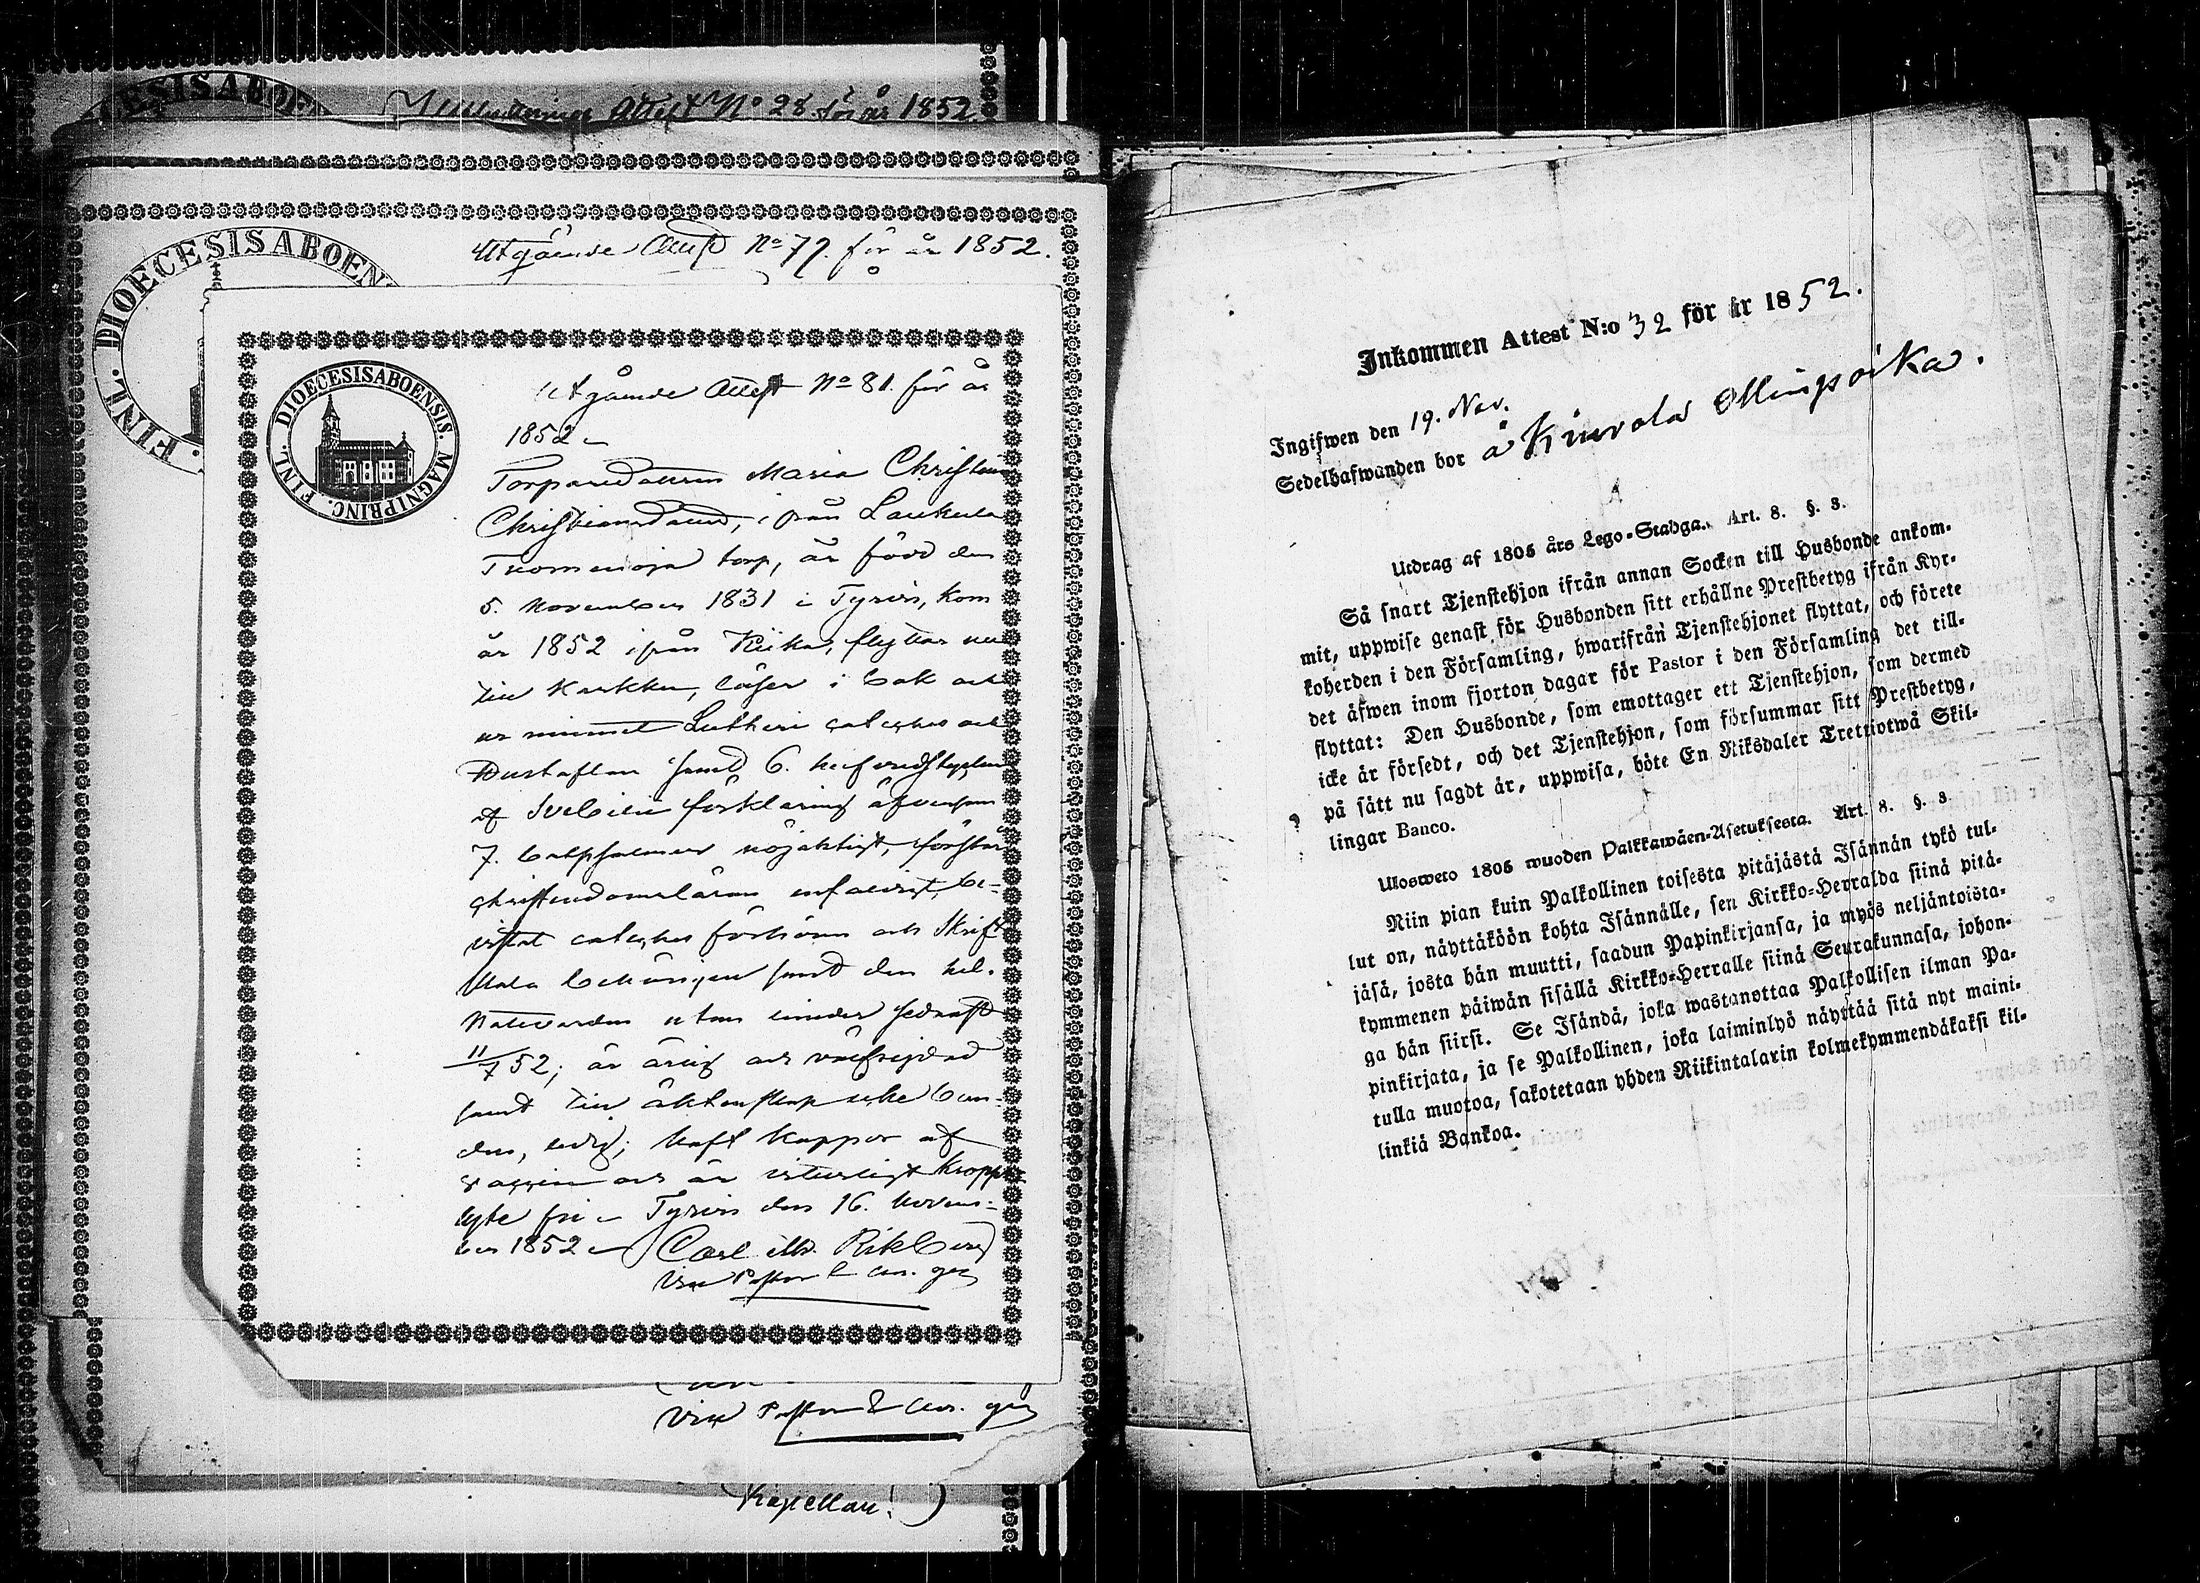 DIOECESIS ABOEN
Attest No 28 för år 1852
DIOECESIS ABOEN
FINL.
Utgående Attest No 79. för år 1852.
DIOECESIS ABOENSIS. MAGNI PRINC. FINL.
Utgående Attest No 81. för år
1852
Torparedottren Maria Christina
Christiansdotter, ifrån Laukula
torp, är född den
5. November 1831 i Tyrvis, kom
år 1852 ifrån Kiika, flyttar nu
till Karkku, läser i bok och
ur minnet Lutheri cateches och
Hustaflan samt 6.
af Svebilii förklaring äfvensom
7. botpsalmer nöjaktigt, förstår
christendomsläran enfaldigt, be-
vistat cateches förhören och Skrift
samt den hel.
Nattvarden sednast
11/7 52; är ärlig och välfrejdad
samt till äktenskap icke bun-
den, ledig; haft koppor af
vaccin och är veterligt kropps-
lyte fri Tyrvis den 16. Novem-
ber 1852 Carl Rikberg
Vice Pastor
Vice Pastor
Kapellan.
Inkommen Attest N:o 32 för år 1852.
Ingifwen den 19. Nov.
Sedelhafwanden bor å Kiurala Ollinpoika.
Utdrag af 1805 års Lego-Stadga. Art. 8. §. 3.
Så snart Tjenstehjon ifrån annan Socken till Husbonde ankom-
mit, uppwise genast för Husbonden sitt erhållne Prestbetyg ifrån Kyr-
koherden i den Församling, hwarifrån Tjenstehjonet flyttat, och förete
det äfwen inom fjorton dagar för Pastor i den Församling det till-
flyttat: Den Husbonde, som emottager ett Tjenstehjon, som dermed
icke är försedt, och det Tjenstehjon, som försummar sitt Prestbetyg,
på sätt nu sagdt är, uppwisa, böte En Riksdaler Trettiotwå Skil-
lingar Banco.
Ulosweto 1805 wuoden Palkkawäen-Asetuksesta. Art. 8. §. 3.
Niin pian kuin Palkollinen toisesta pitäjästä Isännän tykö tul-
lut on, näyttäköön kohta Isännälle, sen Kirkko-Herralda siinä pitä-
jäsä, josta hän muutti, saadun Papinkirjansa, ja myös neljäntoista-
kymmenen päiwän sisällä Kirkko-Herralle siinä Seurakunnasa, johon-
ga hän siirsi. Se Isändä, joka wastanottaa Palkollisen ilman Pa-
pinkirjata, ja se Palkollinen, joka laiminlyö näyttää sitä nyt maini-
tulla muotoa, sakotetaan yhden Riikintalarin kolmekymmendäkaksi kil-
linkiä Bankoa.